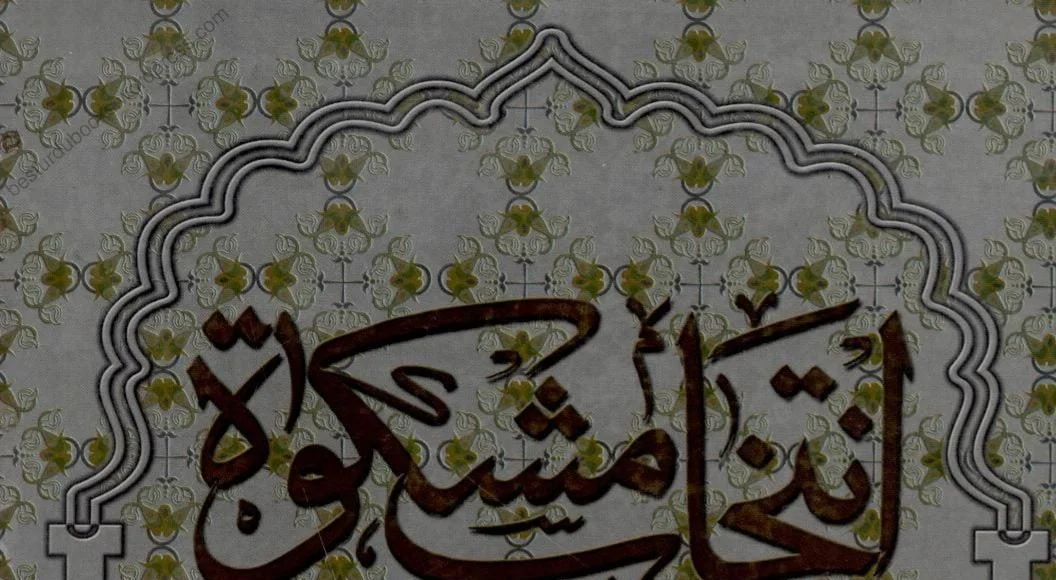 انتخاب مشكوة
besturdubooks.wordpress.com